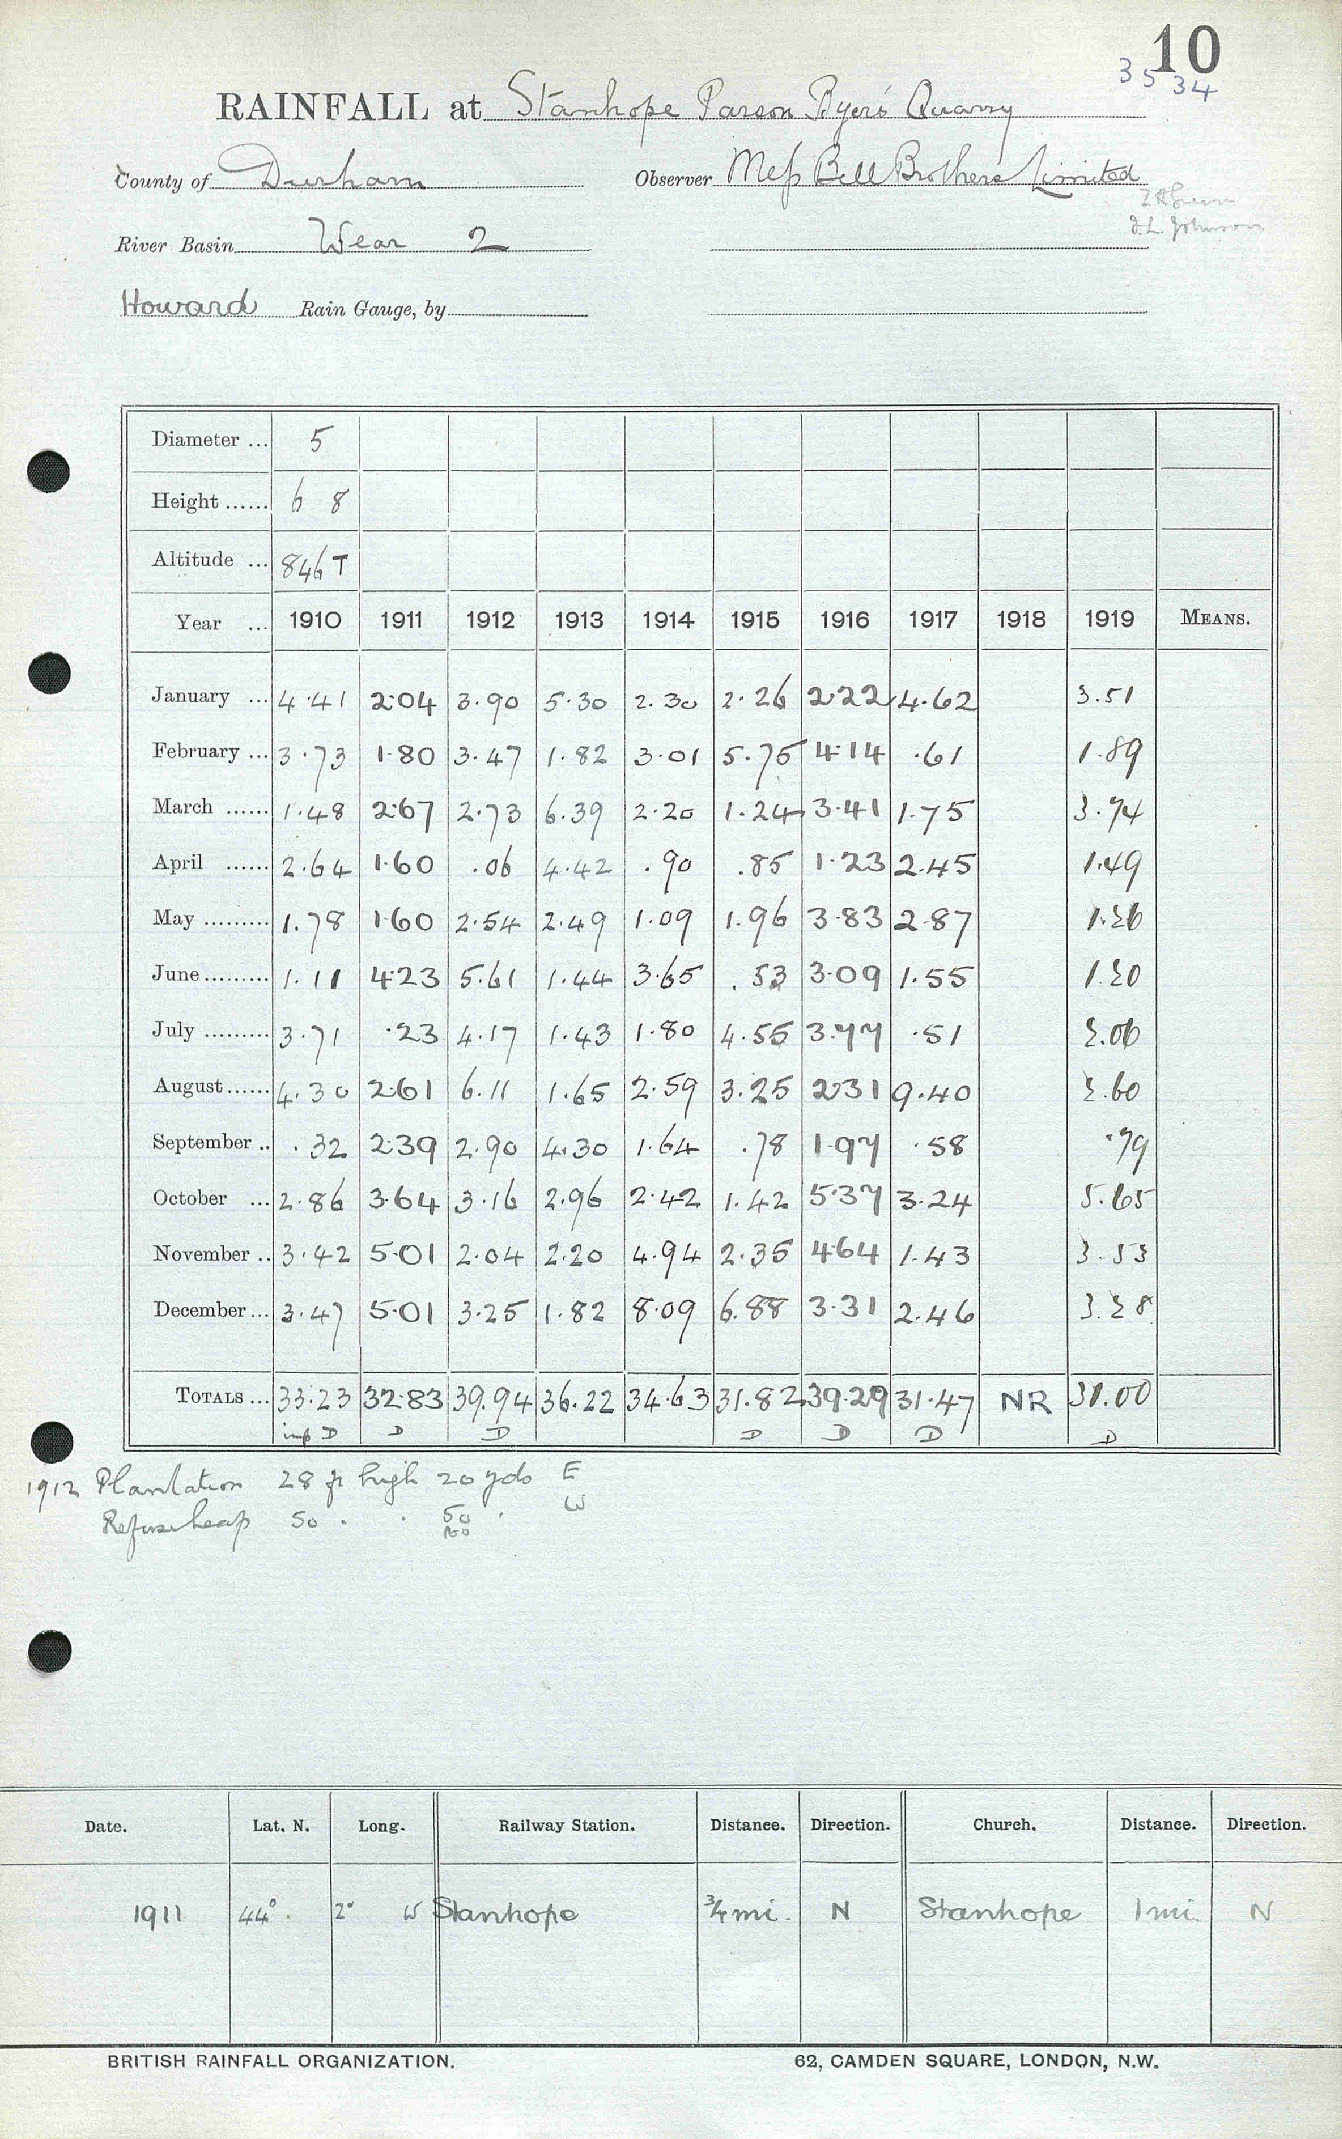 10
3534
RAINFALL at Stanhope Parson Byer's Quarry
County of Durham Observer Mess Bell Brothers Limited
J.L. Johnson
River Basin Wear 2
Howard Rain Gauge, by
Diameter ... 5
Height ...... 6 8
Altitude ... 846 T
Year ... 1910 1911 1912 1913 1914 1915 1916 1917 1918 1919 MEANS.
January ... 4.41 2.04 3.90 5.30 2.30 2.26 2.22 4.62 3.51
February ... 3.73 1.80 3.47 1.82 3.01 5.75 4.14 .61 1.89
March ...... 1.48 2.67 2.73 6.39 2.20 1.24 3.41 1.75 3.74
April ...... 2.64 1.60 .06 4.42 .90 .85 1.23 2.45 1.49
May ......... 1.78 1.60 2.54 2.49 1.09 1.96 3.83 2.87 1.26
June ......... 1.11 4.23 5.61 1.44 3.65 .53 3.09 1.55 1.20
July ......... 3.71 .23 4.17 1.43 1.80 4.55 3.77 .51 2.06
August ...... 4.30 2.61 6.11 1.65 2.59 3.25 2.31 9.40 2.60
September .. .32 2.39 2.90 4.30 1.64 .78 1.97 .58 .79
October ... 2.86 3.64 3.16 2.96 2.42 1.42 5.37 3.24 5.65
November .. 3.42 5.01 2.04 2.20 4.94 2.35 4.64 1.43 3.53
December ... 3.47 5.01 3.25 1.82 8.09 6.88 3.31 2.46 3.28
TOTALS ... 33.23 32.83 39.94 36.22 34.63 31.82 39.29 31.47 NR 31.00
imp D D D D D D D
1912 Plantation 28 ft high 20 yds E
Refuse heap 50 . . 50 . W
100
Date. Lat. N. Long. Railway Station. Distance. Direction. Church. Distance. Direction.
1911 44° 2° W Stanhope ¾ mi. N Stanhope 1 mi. N
BRITISH RAINFALL ORGANIZATION. 62, CAMDEN SQUARE, LONDON, N.W.